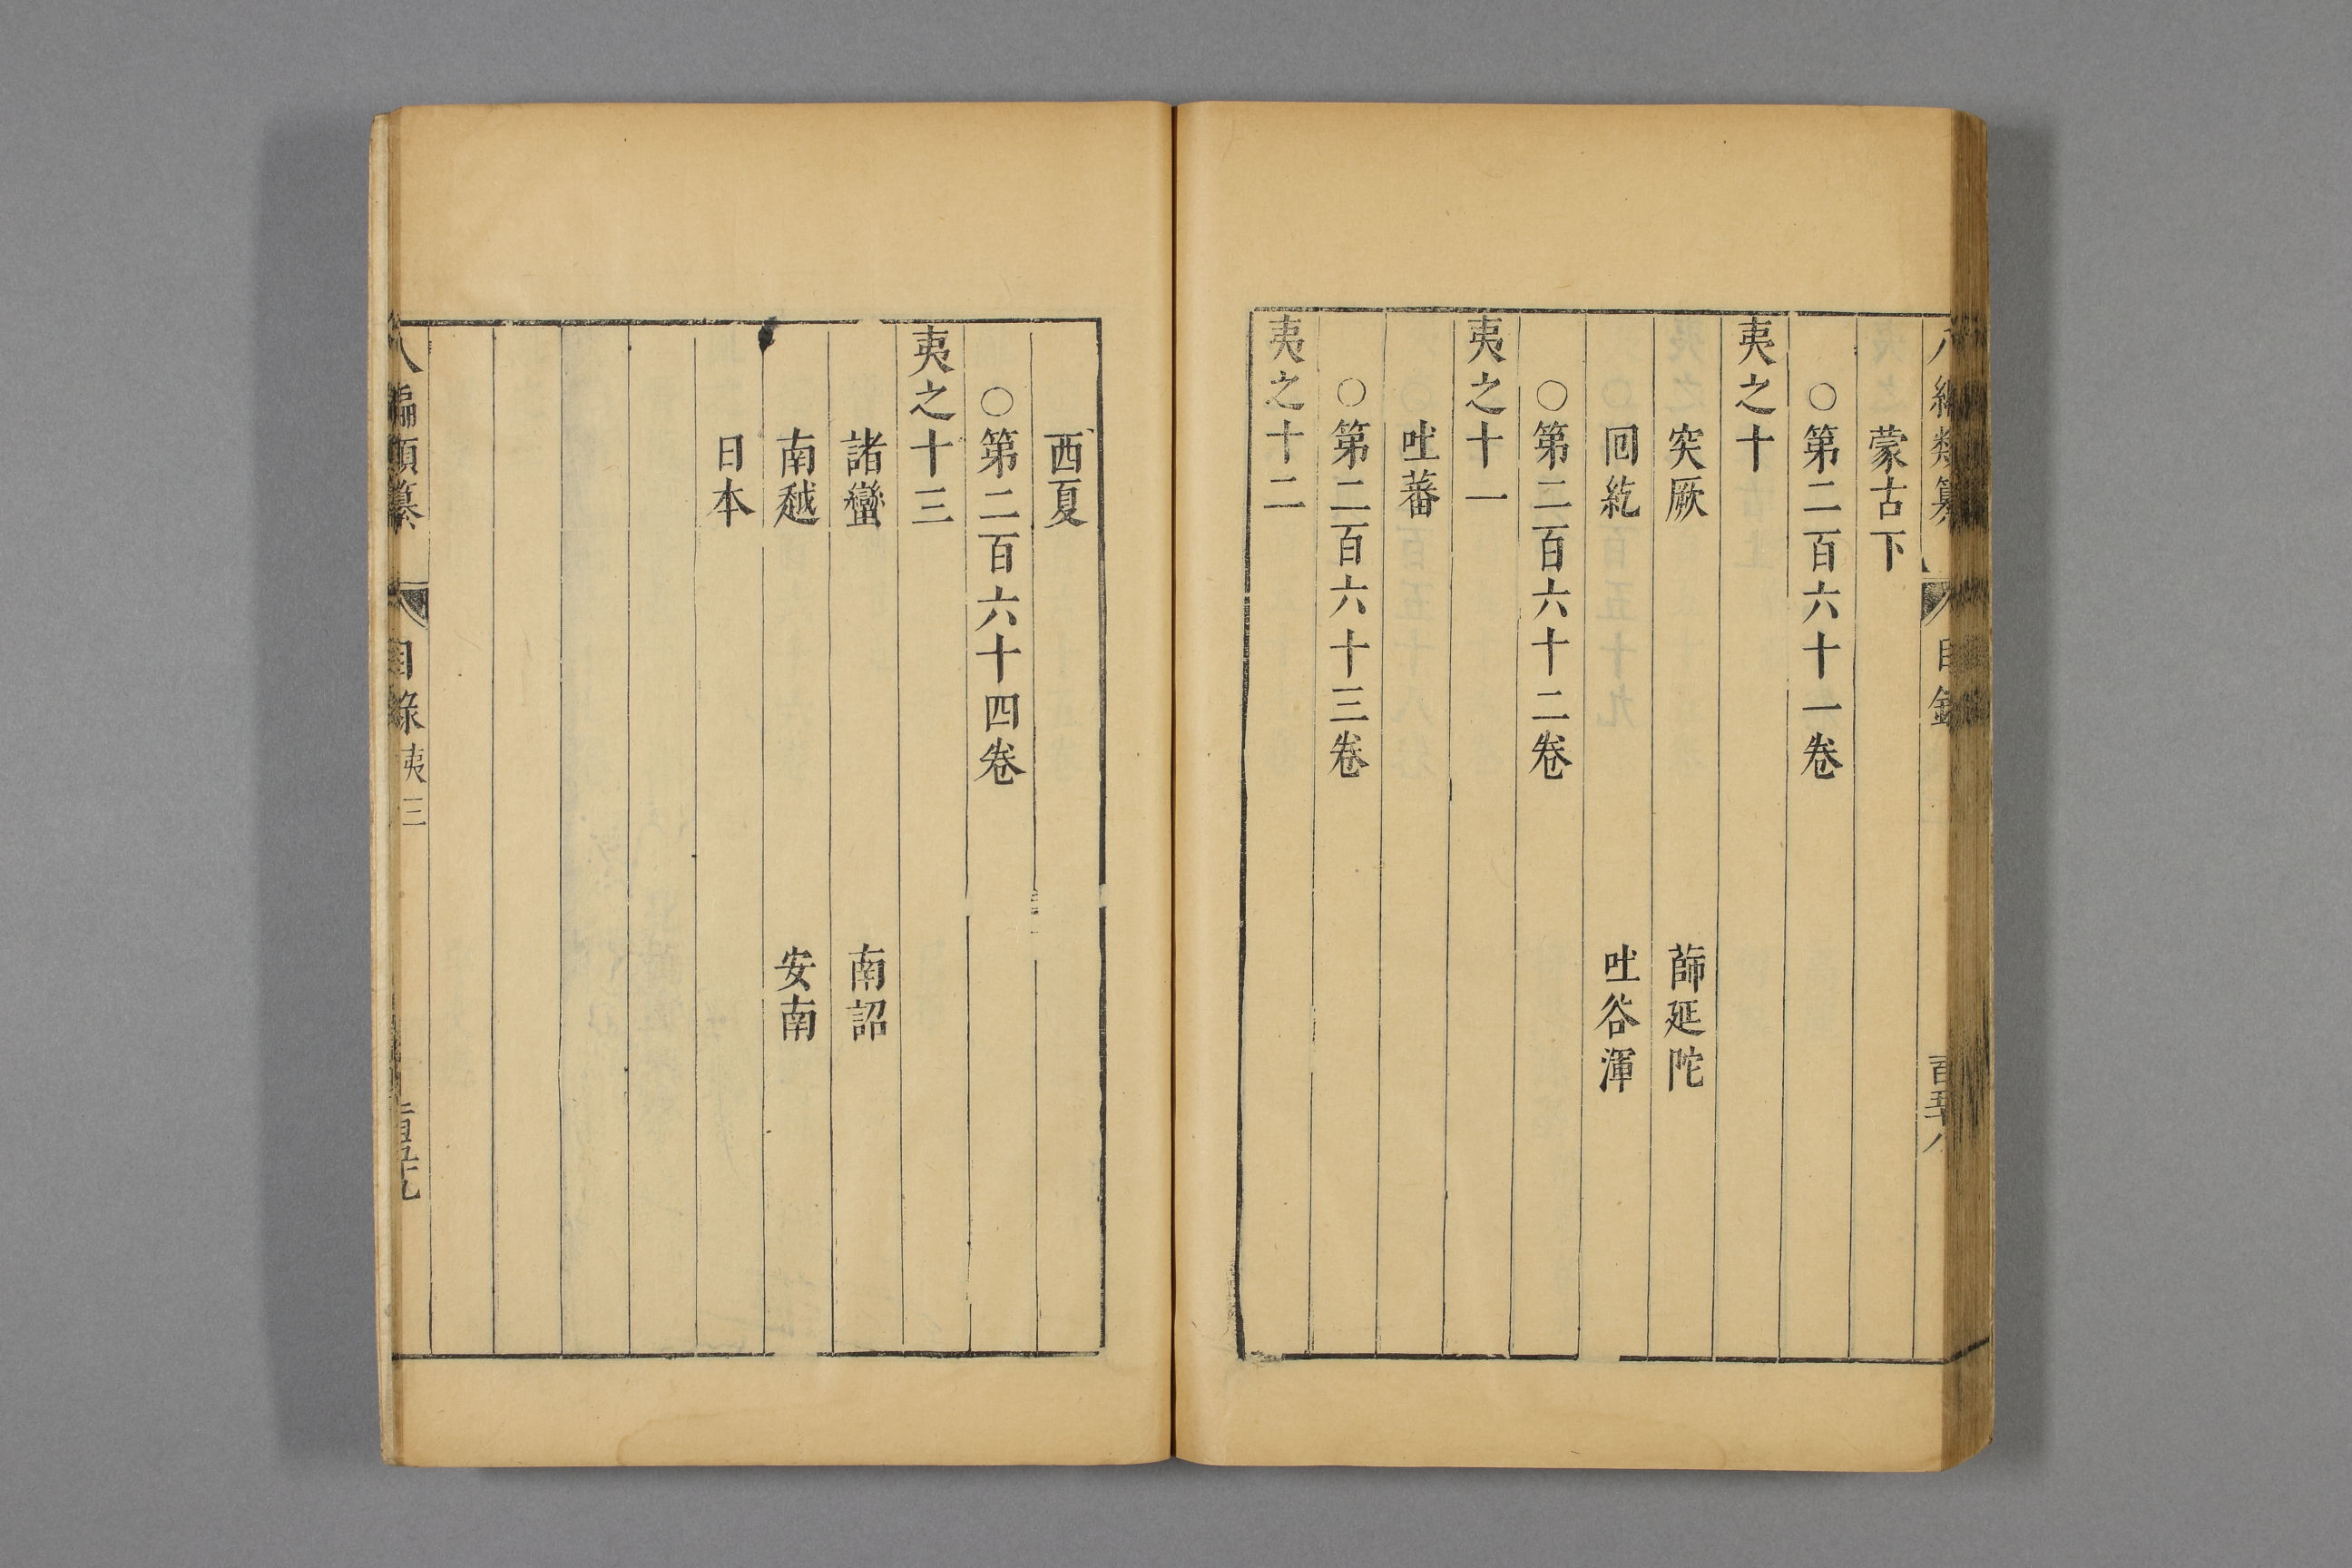 八編類纂 目錄 百五十八
蒙古下
○第二百六十一卷
夷之十
突厥 薛延陀
回紇 吐谷渾
○第二百六十二卷
夷之十一
吐蕃
○第二百六十三卷
夷之十二
西夏
○第二百六十四卷
夷之十三
諸蠻 南詔
南越 安南
日本
八編類纂 目錄 夷三 一百五十九